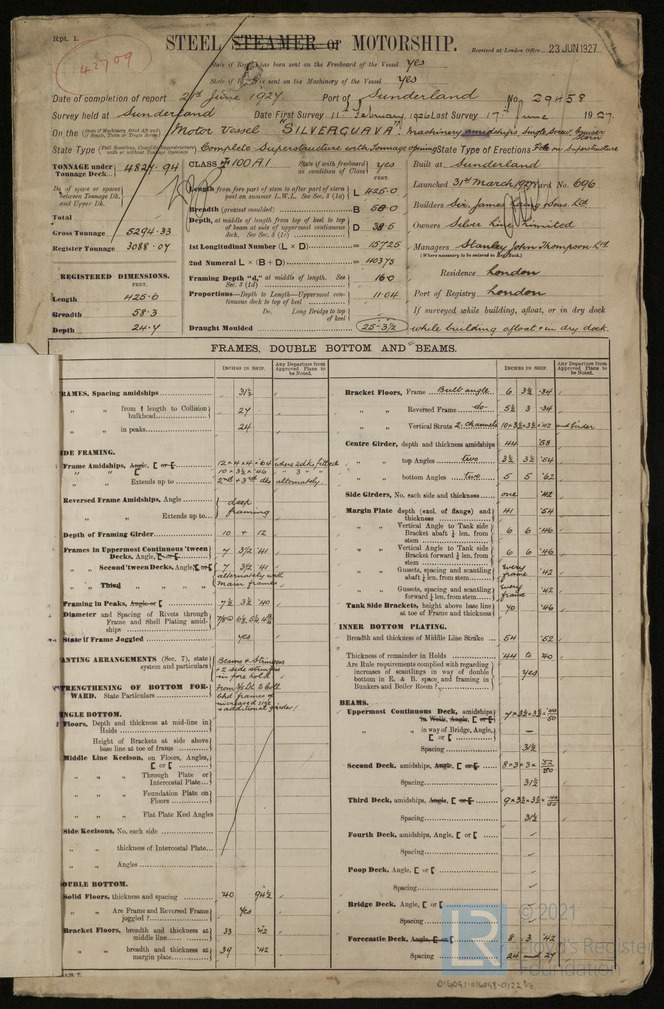 Rpt. 1.
42709
STEEL STEAMER or MOTORSHIP.
Received at London Office 23 JUN 1927
State if Report has been sent on the Freeboard of the Vessel yes
State if Report is sent on the Machinery of the Vessel yes
Date of completion of report 21st June 1927. Port of Sunderland No. 29458
Survey held at Sunderland Date First Survey 11th February, 1926 Last Survey 17th June 1927.
On the Motor Vessel "SILVERGUAVA". Machinery amidships Single Screw Cruiser Stern
State Type Complete Superstructure with Tonnage opening State Type of Erections Fcle on Superstructure
TONNAGE under Tonnage Deck... 4827.94
CLASS 100 A.1 State if with freeboard as condition of Class yes
Built at Sunderland
Do. of space or spaces between Tonnage Dk. and Upper Dk.
Total
Gross Tonnage 5294.33
Register Tonnage 3088.07
REGISTERED DIMENSIONS.
FEET.
Length 425.6
Breadth 58.3
Depth 24.4
Length from fore part of stem to after part of stern post on summer L.W.L. See Sec. 3 (1a) L 425.0
Breadth (greatest moulded) B 58.0
Depth, at middle of length from top of keel to top of beam at side of uppermost continuous deck. See Sec. 3 (1c) D 38.5
1st Longitudinal Number (L × D) = 15725
2nd Numeral L × (B + D) = 40375
Framing Depth "d," at middle of length. See Sec. 3 (1d) 16.0
Proportions—Depth to Length—Uppermost continuous deck to top of keel 11.04
Do. Long Bridge to top of keel
Draught Moulded 25-3½
Launched 31st March 1927 Yard No. 696
Builders Sir James Laing & Sons. Ltd
Owners Silver Line Limited
Managers Stanley John Thompson Ltd
(Where necessary to be entered in Reg. Book.)
Residence London
Port of Registry London
If surveyed while building, afloat, or in dry dock
while building afloat & in dry dock.
FRAMES, DOUBLE BOTTOM AND BEAMS.
INCHES IN SHIP. Any Departure from Approved Plans to be Noted.
INCHES IN SHIP. Any Departure from Approved Plans to be Noted.
RAMES, Spacing amidships 31½
" " from ¼ length to Collision bulkhead 27
" " in peaks 24
IDE FRAMING.
Frame Amidships, Angle, [ or [ 12 × 4 × 4 × .64 where 2 dks. fitted
" " [ 10 × 3½ × .46 " 3 "
" " Extends up to 2nd & 3rd dks alternately
Reversed Frame Amidships, Angle deep framing
" " Extends up to
Depth of Framing Girder 10 & 12
Frames in Uppermost Continuous 'tween Decks, Angle, [ or [ 7 3½ .41
" Second 'tween Decks, Angle, [ or [ 7 3½ .41
" Third " " " alternately with main frames
Framing in Peaks, Angle or [ 7½ 3½ .40
Diameter and Spacing of Rivets through Frame and Shell Plating amidships
State if Frame Joggled yes
ANTING ARRANGEMENTS (Sec. 7), state system and particulars Beams & Stringers & 2 side stringers in fore hold
TRENGTHENING OF BOTTOM FORWARD. State Particulars
INGLE BOTTOM.
Floors, Depth and thickness at mid-line in Holds
Height of Brackets at side above base line at toe of frame
Middle Line Keelson, on Floors, Angles, [ or [
" " Through Plate or Intercostal Plate
" " Foundation Plate on Floors
" " Flat Plate Keel Angles
Side Keelsons, No. each side
" " thickness of Intercostal Plate
" " Angles
OUBLE BOTTOM.
Solid Floors, thickness and spacing .40 94½
" " Are Frame and Reversed Frame joggled? Yes
Bracket Floors, breadth and thickness at middle line 33 .42
" " breadth and thickness at margin plate 39 .42
Bracket Floors, Frame Bulb angle 6 3½ .34
" " Reversed Frame do 5½ 3 .34
" " Vertical Struts 2 channels 10 × 3½ × 3½ × .42 and girder
Centre Girder, depth and thickness amidships 44 .58
" " top Angles two 3½ 3½ .54
" " bottom Angles two 5 5 .62
Side Girders, No. each side and thickness one .42
Margin Plate depth (excl. of flange) and thickness 41 .54
" " Vertical Angle to Tank side Bracket abaft ¼ len. from stem 6 6 .46
" " Vertical Angle to Tank side Bracket forward ¼ len. from stem 6 6 .46
" " Gussets, spacing and scantling abaft ¼ len. from stem every frame .42
" " Gussets, spacing and scantling forward ¼ len. from stem every frame .42
Tank Side Brackets, height above base line at toe of Frame and thickness 70 .46
INNER BOTTOM PLATING.
Breadth and thickness of Middle Line Strake 54 .52
Thickness of remainder in Holds .44 to .40
Are Rule requirements complied with regarding increases of scantlings in way of double bottom in E. & B. space and framing in Bunkers and Boiler Room? yes
BEAMS.
Uppermost Continuous Deck, amidships in Wells, Angle, [ or [ 7 × 3½ × 3½ × .40/.50
" " in way of Bridge, Angle, [ or [ —
Spacing 31½
Second Deck, amidships, Angle, [ or [ 8 × 3 × 3 ×
Spacing 31½
Third Deck, amidships, Angle, [ or [ 9 × 3½ × 3½ ×
Spacing 31½
Fourth Deck, amidships, Angle, [ or [
Spacing
Poop Deck, Angle, [ or [
Spacing
Bridge Deck, Angle, [ or [
Spacing
Forecastle Deck, Angle, [ or [ 8 3 .42
Spacing 24 and 27
LR
© 2021
Lloyd's Register
Foundation